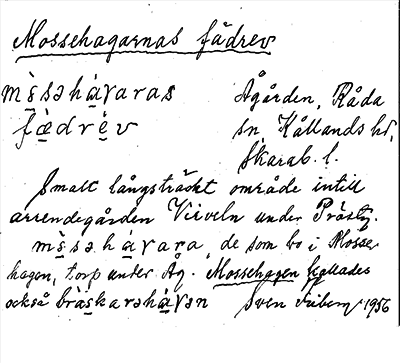 Mossehagarnas fädrev
ms̀səhàɣaras Ågården, Råda
fæ̀drèv sn, Kållands hd,
Skarab. l.
Smalt långsträckt område intill
arrendegården Virveln under Prästg.
ms̀səhàɣara, de som bo i Mosse-
hagen, torp under Åg. Mossehagen kallades
också bràskarəhàɣən Sven 1956